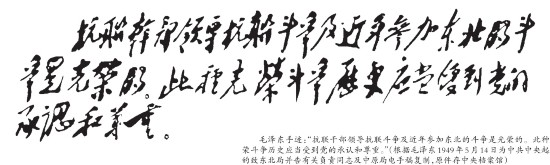 抗联幹部领导抗联斗争及近年参加东北的斗
争是光荣的。此种光荣斗争历史应当受到党的
承认和尊重。
毛泽东手迹:“抗联干部领导抗联斗争及近年参加东北的斗争是光荣的。此种光
荣斗争历史应当受到党的承认和尊重。”(根据毛泽东1949年5月14日为中共中央起草
的致东北局并告有关负责同志及中原局电手稿复制,原件存中央档案馆)